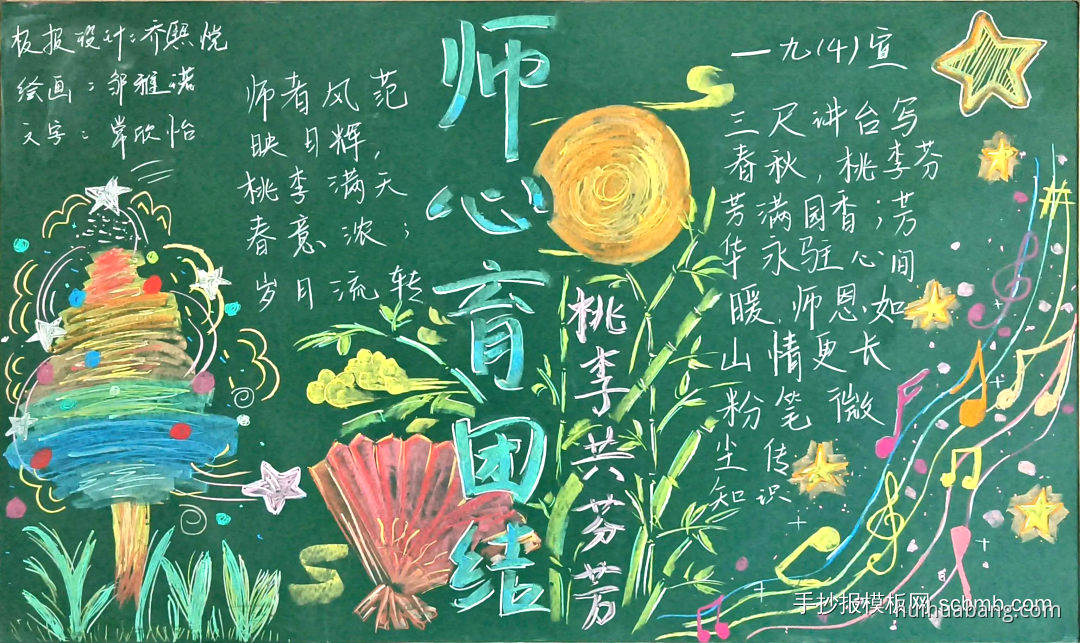 板报设计：乔熙悦
绘画：邹雅诺
文字：常欣怡
师者风范
映日辉，
桃李满天
春意浓；
岁月流转
师心育团结
桃李共芬芳
一九(4)宣
三尺讲台写
春秋，桃李芬
芳满园香；芳
华永驻心间
暖，师恩如
山情更长
粉笔微
尘传
知识
手抄报模板网 scbmb.com
huihuabang.com